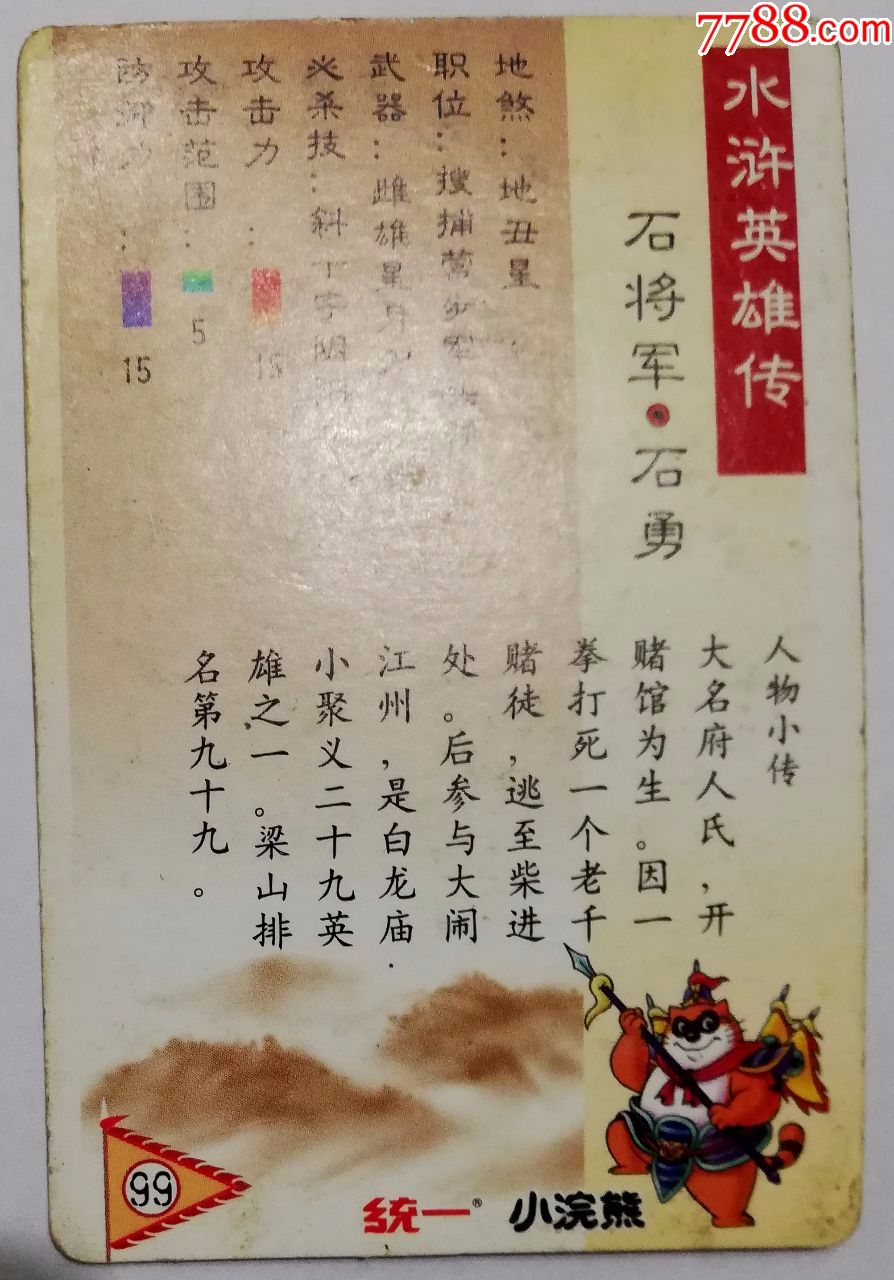 7788.com
水浒英雄传
石将军·石勇
地煞：地丑星
职位：搜捕营
武器：雌雄星
必杀技：斜丁字
攻击力：15
攻击范围：5
防御力：15
人物小传
大名府人氏，开
赌馆为生。因一
拳打死一个老千
赌徒，逃至柴进
处。后参与大闹
江州，是白龙庙
小聚义二十九英
雄之一。梁山排
名第九十九。
99
统一® 小浣熊